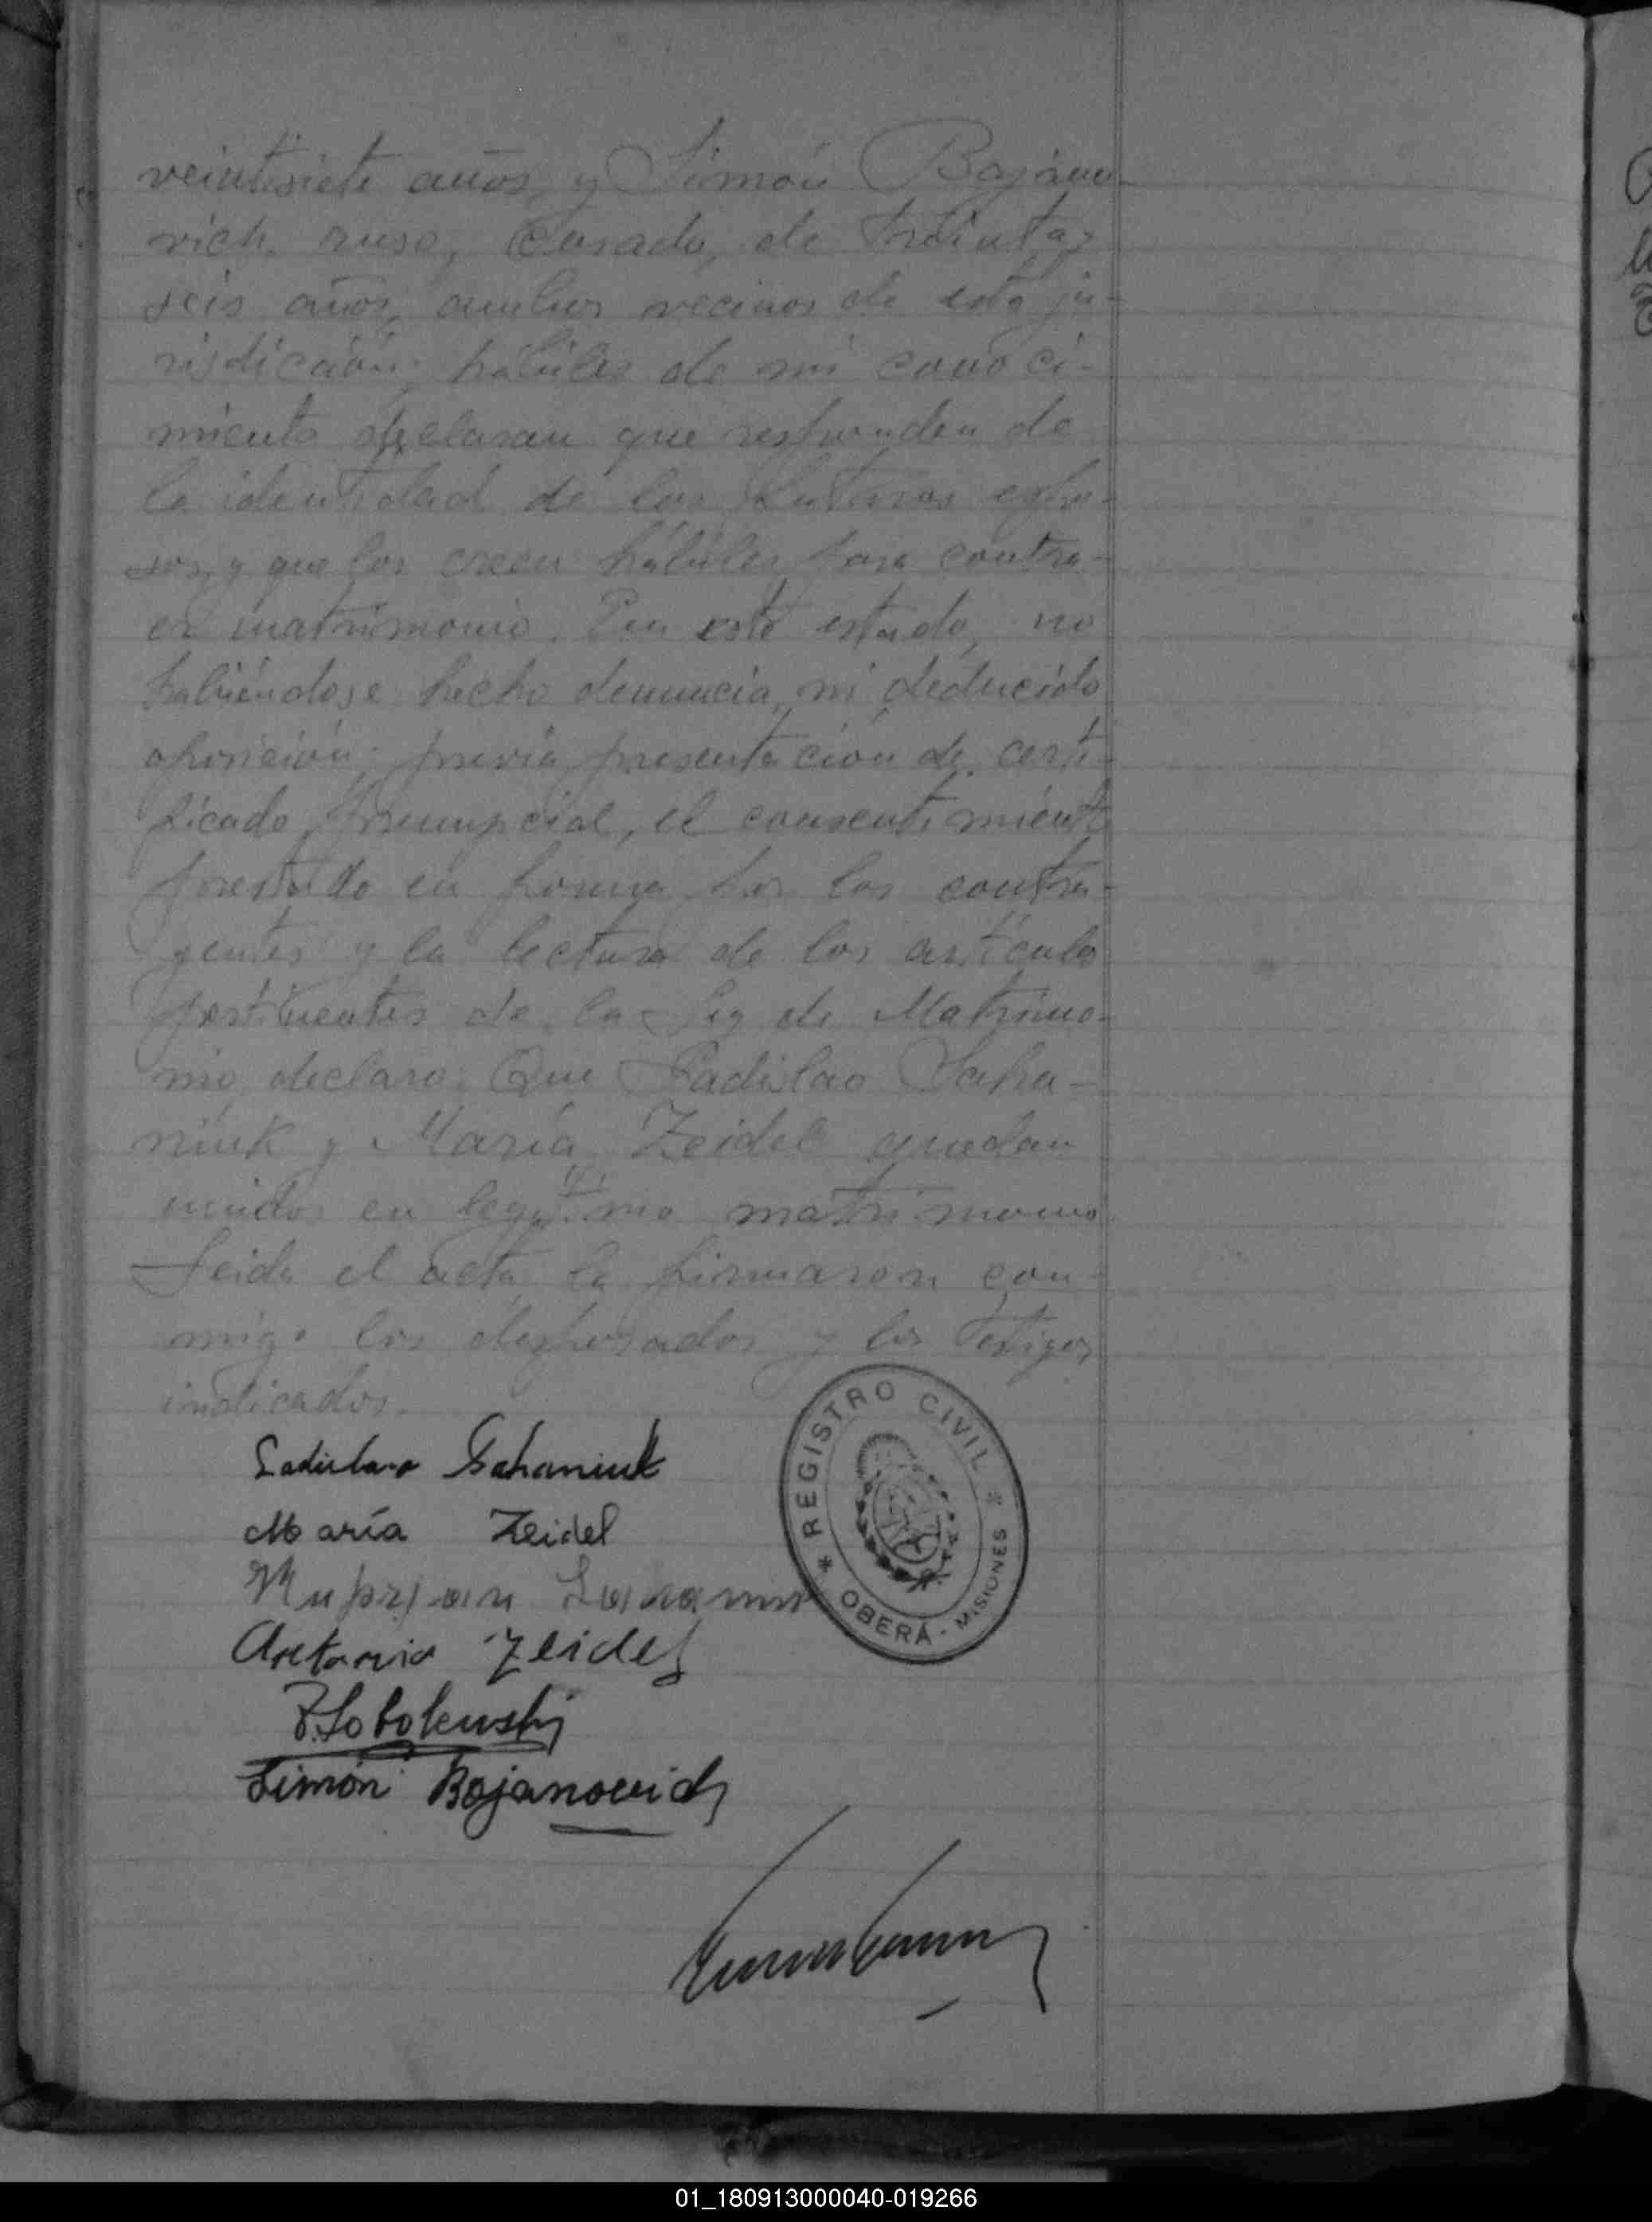 veintisiete años, y Simón Bojano-
vich, ruso, casado, de treinta y
seis años, ambos vecinos de esta ju-
risdicción; hábiles de mi conoci-
miento declaran que responden de
la identidad de los futuros espo-
sos, y que los creen hábiles para contra-
er matrimonio. En este estado, no
habiéndose hecho denuncia, ni deducido
oposición; previa presentación de certi-
ficado prenupcial, el consentimiento
prestado en forma por los contra-
yentes y la lectura de los artículos
pertinentes de la Ley de Matrimo-
nio, declaro: Que Ladislao Saha-
niuk y María Zeidel quedan
unidos en legítimo matrimonio.
Leida el acta, la firmaron con-
migo los desposados y los testigos
indicados.
Ladislao Sahaniuk
María Zeidel
Antonio Zeidel
Sobolewski
Simón Bojanovich
* REGISTRO CIVIL *
OBERÁ - MISIONES
01_180913000040-019266